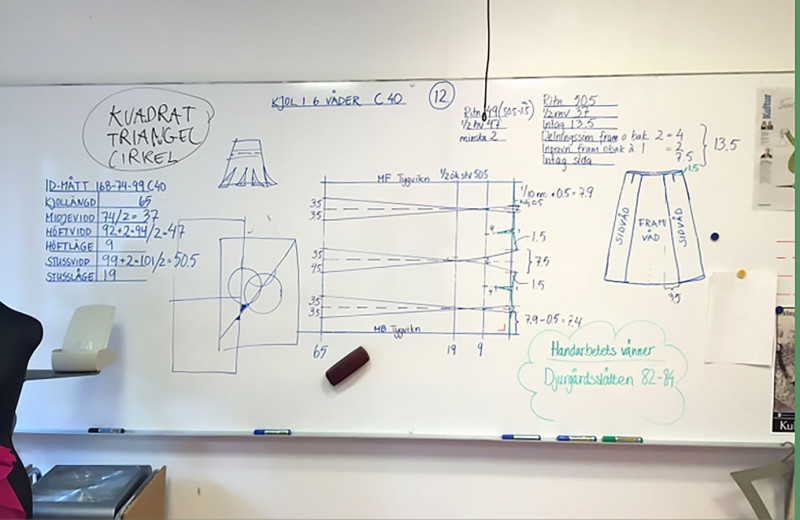 KJOL I 6 VÅDER C40
12.
KVADRAT
TRIANGEL
CIRKEL
ID-MÅTT 168-74-99 C40
KJOLLÄNGD 65
MIDJEVIDD 74/2 = 37
HÖFTVIDD 92+2=94/2=47
HÖFTLÄGE 9
STUSSVIDD 99+2=101/2=50.5
STUSSLÄGE 19
MF Tygvikn 1/2 ök stv 50.5
35
35
35
45
35
35
MB Tygvikn
65 19 9
1/10 mv +0.5=7.9
1.5
7.5
1.5
7.9-0.5=7.4
Ritn 49 (50.5-1.5)
1/2 hv 47
minska 2
Ritn 50.5
1/2 mv 37
Intag 13.5
Delningssöm fram o bak 2 = 4
Inprovn fram o bak à 1 = 2
Intag sida 7.5
13.5
1.5
SIDVÅD
FRAM VÅD
SIDVÅD
35
Handarbetets vänner
Djurgårdsslätten 82-84
Kultur
Ku